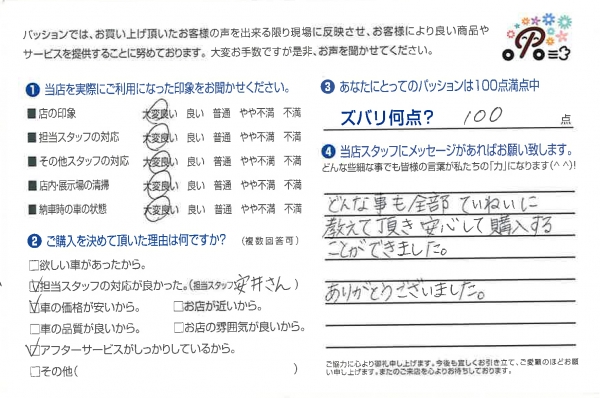 パッションでは、お買い上げ頂いたお客様の声を出来る限り現場に反映させ、お客様により良い商品や
サービスを提供することに努めております。大変お手数ですが是非、お声を聞かせてください。
❶ 当店を実際にご利用になった印象をお聞かせください。
■店の印象 大変良い 良い 普通 やや不満 不満
■担当スタッフの対応 大変良い 良い 普通 やや不満 不満
■その他スタッフの対応 大変良い 良い 普通 やや不満 不満
■店内・展示場の清掃 大変良い 良い 普通 やや不満 不満
■納車時の車の状態 大変良い 良い 普通 やや不満 不満
❷ ご購入を決めて頂いた理由は何ですか? (複数回答可)
□欲しい車があったから。
☑担当スタッフの対応が良かった。(担当スタッフ: 安井さん)
☑車の価格が安いから。 □お店が近いから。
□車の品質が良いから。 □お店の雰囲気が良いから。
☑アフターサービスがしっかりしているから。
□その他( )
❸ あなたにとってのパッションは100点満点中
ズバリ何点? 100 点
❹ 当店スタッフにメッセージがあればお願い致します。
どんな些細な事でも皆様の言葉が私たちの「力」になります(^ ^)!
どんな事も全部 ていねいに
教えて頂き 安心して購入する
ことができました。
ありがとうございました。
ご協力に心より御礼申し上げます。今後も宜しくお引き立て、ご愛顧のほどお願
い申し上げます。またのご来店を心よりお待ちしております。